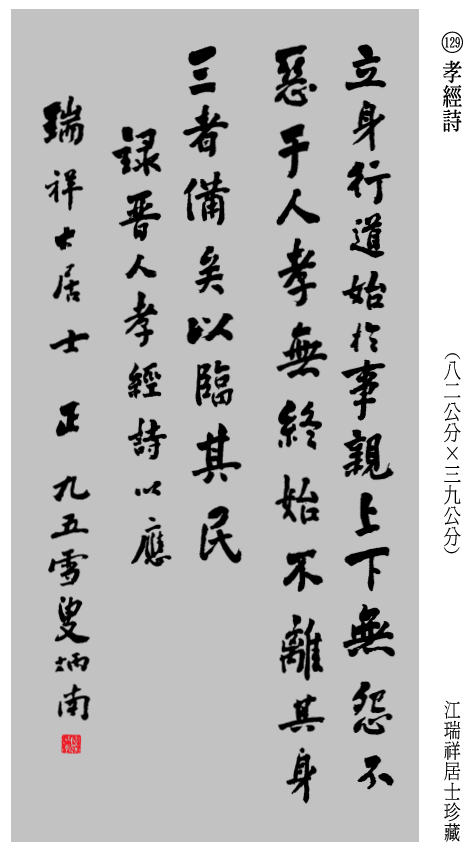 129 孝經詩
（八二公分×三九公分）
江瑞祥居士珍藏
立身行道始於事親上下無怨不
惡于人孝無終始不離其身
三者備矣以臨其民
錄晉人孝經詩以應
瑞祥大居士 正 九五雪叟炳南